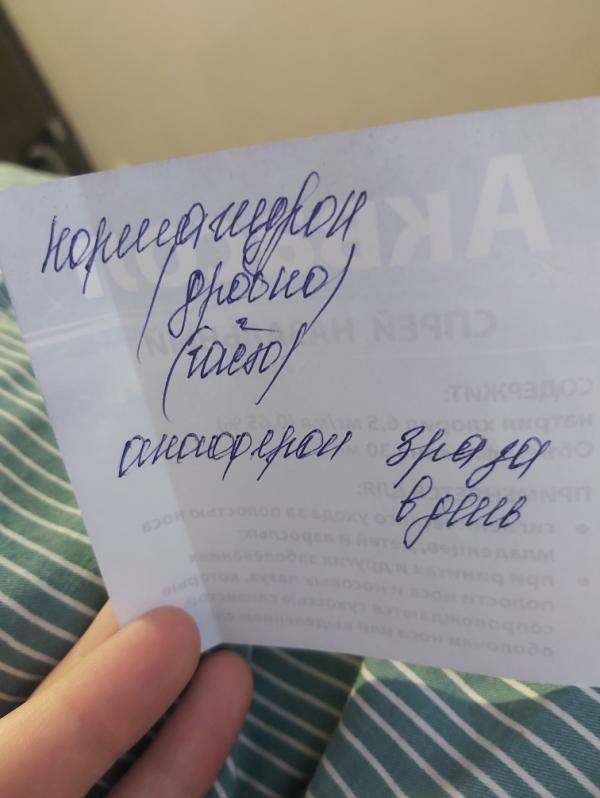 нормагидрон
(дробно)
(часто)
анаферон 3 раза
в день
Аквасол
СПРЕЙ НАЗАЛЬНЫЙ
СОДЕРЖИТ:
натрия хлорид 6,5 мг/мл (0,65 %)
ПРИМЕНЯЕТСЯ ДЛЯ:
ухода за полостью носа
младенцев, детей и взрослых;
при ринитах и других заболеваниях
полости носа и носовых пазух, которые
сопровождаются сухостью слизистой
оболочки носа или выделением